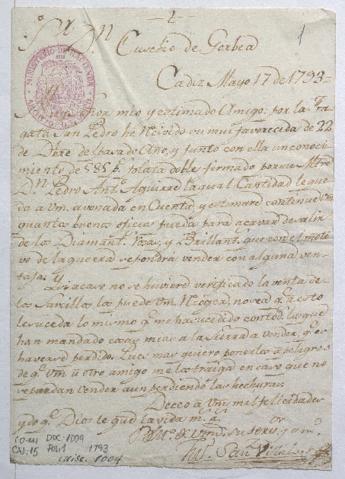 1
Sr. Dn. Eusebio de Gorbea
Cadiz Mayo 17 de 1793
Muy Sor mio y estimado Amigo: por la Fra
gata San Pedro he Recivido su mui favorecida de 22
de Dize de pasado Año, y junto con ella un conoci
miento de 585 p. plata doble firmado por su Mtre
Dn. Pedro Anto. Aguirre la qual Cantidad le que
da a Vm. avonada en Cuenta y estimaré continue Vm
quantos buenos oficios pueda para acavar de salir
de los Diamant. Rosas, y Brillant. que con el moti
vo de la guerra se podran vender con alguna ven
taja. Y
si acaso no se huviere verificado la venta de
los Sarcillos los puede Vm. Recojer, no sea q.
le suceda lo mismo q. me ha sucedido con todo lo que
han mandado casas mias a la Sierra a vender q. se
ha verdad perdido. Pues mas quiero ponerlos a peligro
de q. Vm. u otro amigo me los traiga en caso que no
se puedan vender aun perdiendo las hechuras.
Deseo a Vm. mil felicidades
y do q. Dios le gue la vida m. a.
B. l. m. de Vm. su seguro
CO-111 DOC-1009
CAJ.15 Fol.1 1793